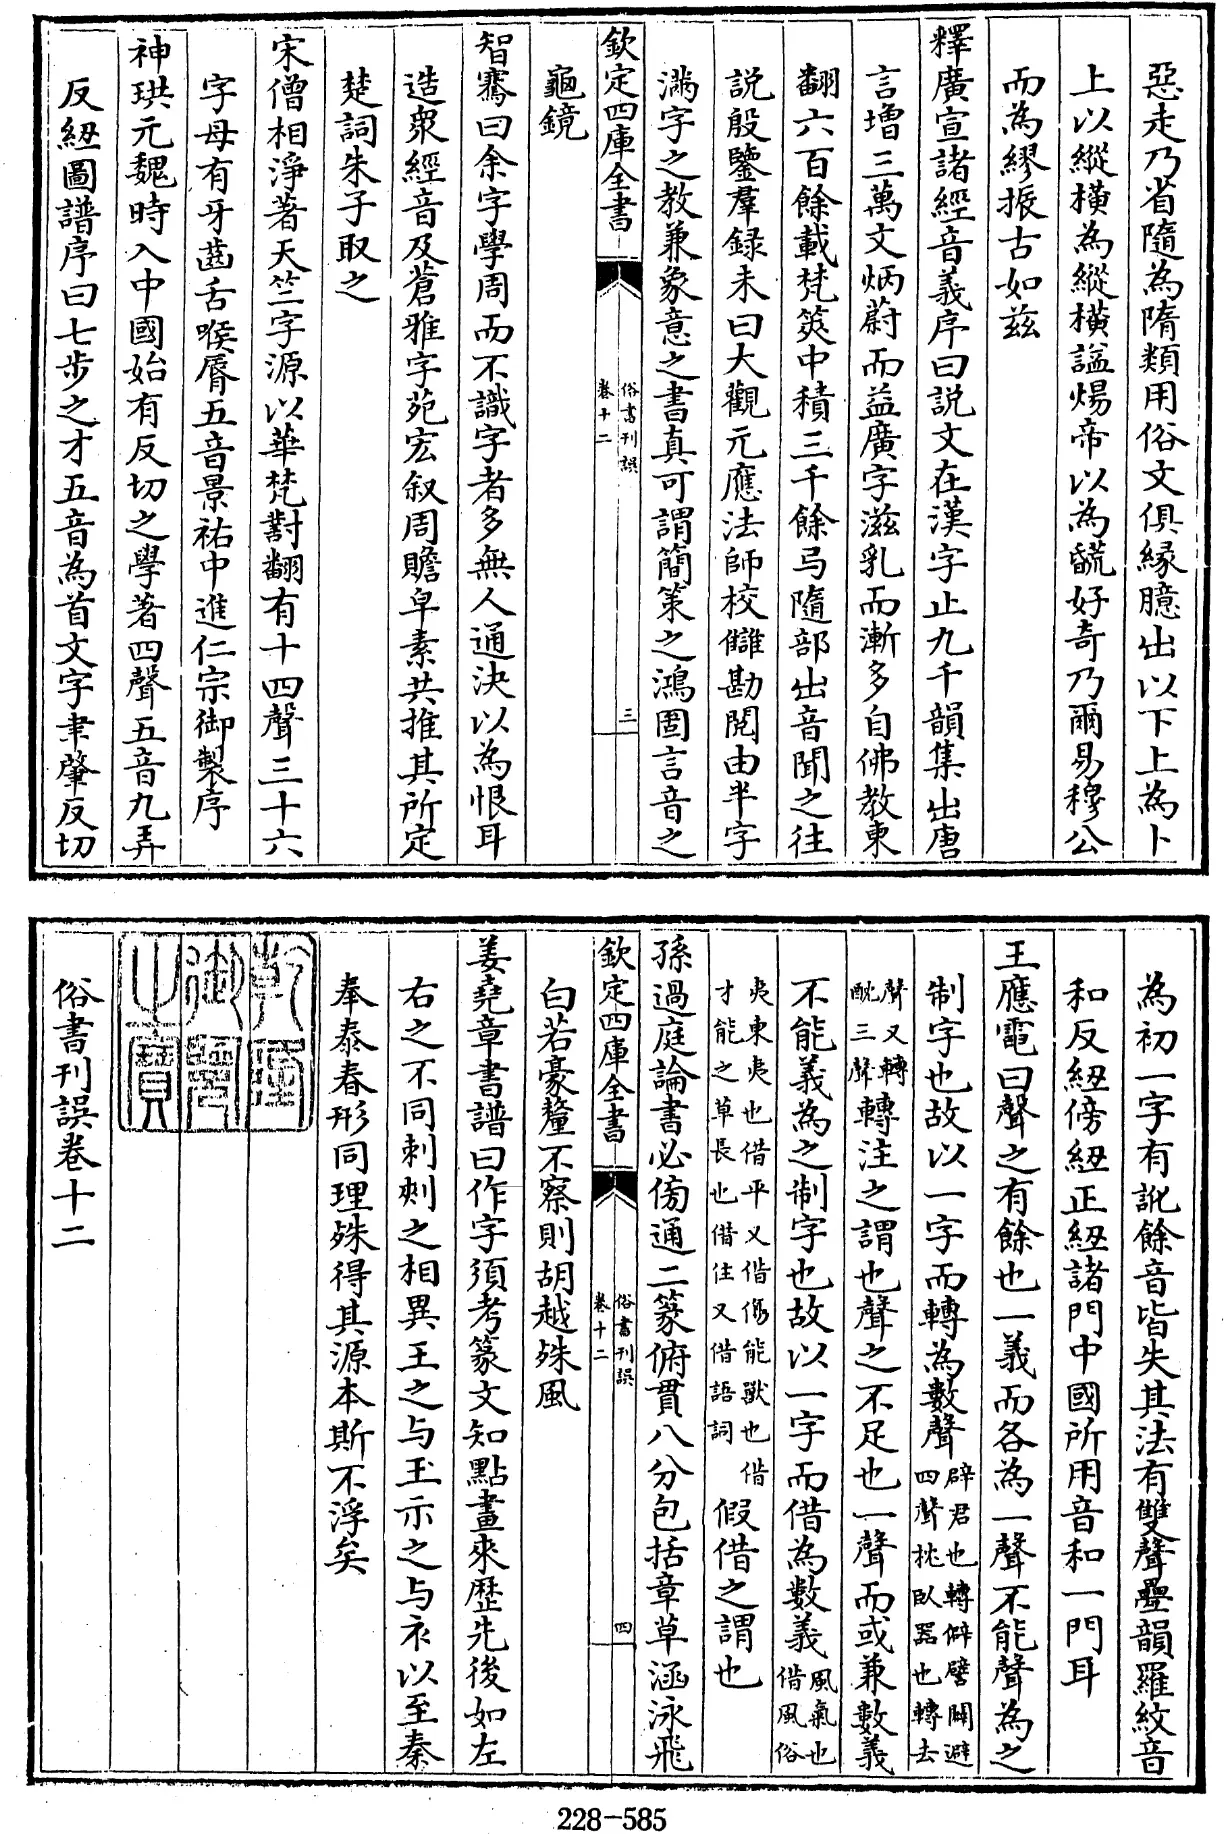 惡走乃省隨為隋類用俗文俱緣臆出以下上為卜
上以縱橫為縱橫諡煬帝以為巟好奇乃爾易穆公
而為繆振古如茲
釋廣宣諸經音義序曰説文在漢字止九千韻集出唐
言增三萬文炳蔚而益廣字滋乳而漸多自佛教東
翻六百餘載梵筴中積三千餘㢧隨部出音聞之往
説殷鑒羣録未曰大觀元應法師校讎勘閱由半字
滿字之教兼象意之書真可謂簡策之鴻固言音之
欽定四庫全書
俗書刊誤
卷十二
三
龜鏡
智騫曰余字學周而不識字者多無人通決以為恨耳
造衆經音及蒼雅字苑宏叙周贍卓素共推其所定
楚詞朱子取之
宋僧相淨著天竺字源以華梵對翻有十四聲三十六
字母有牙齒舌喉脣五音景祐中進仁宗御製序
神珙元魏時入中國始有反切之學著四聲五音九弄
反紐圖譜序曰七步之才五音為首文字聿肇反切
為初一字有訛餘音皆失其法有雙聲疊韻羅紋音
和反紐傍紐正紐諸門中國所用音和一門耳
王應電曰聲之有餘也一義而各為一聲不能聲為之
制字也故以一字而轉為數聲辟君也轉僻譬闢避
四聲枕臥器也轉去
聲又轉
酖三聲轉注之謂也聲之不足也一聲而或兼數義
不能義為之制字也故以一字而借為數義風氣也
借風俗
夷東夷也借平又借傷能獸也借
才能之草長也借住又借語詞假借之謂也
孫過庭論書必傍通二篆俯貫八分包括章草涵泳飛
欽定四庫全書
俗書刊誤
卷十二
四
白若豪釐不察則胡越殊風
姜堯章書譜曰作字須考篆文知點畫來歷先後如左
右之不同刺剌之相異王之与玉示之与衣以至秦
奉泰春形同理殊得其源本斯不浮矣
乾隆
御覽
之寶
俗書刊誤卷十二
228-585